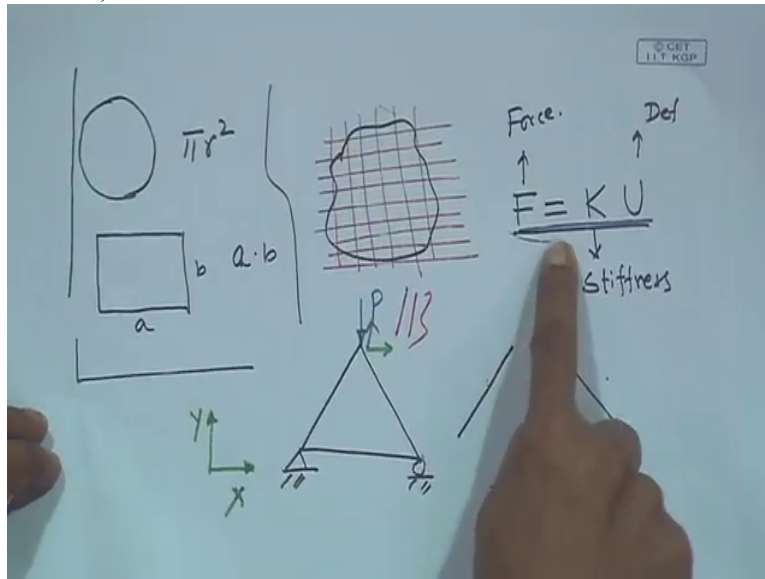 © CET
I.I.T. KGP
πr²
b
a·b
a
Force.
Def
F = K U
Stiffness
P
113
Y
X